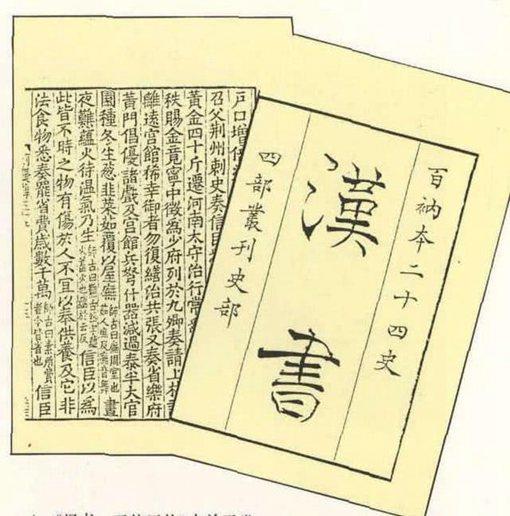 百衲本二十四史
漢書
四部叢刊史部
戶口增倍
召父荆州刺史奏信臣
黃金四十斤遷河南太守治行常
秩賜金竟寧中徵為少府列於九卿奏請上林
離遠宮館稀幸御者勿復繕治共張又奏省樂府
黃門倡優諸戲及宮館兵弩什器減過泰半太官
園種冬生葱韭菜茹覆以屋廡 晝
夜難蘊火待温氣乃生 信臣以為
此皆不時之物有傷於人不宜以奉供養及它非
法食物悉奏罷省費歲數千萬師古曰素所費者今皆省也信臣